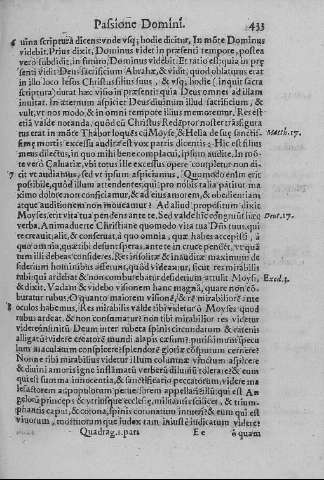 Passione Domini. 433
6 uina scriptura dicens vnde vsq; hodie dicitur, In mõte Dominus
videbit. Prius dixit, Dominus videt in præsenti tempore, postea
verò subdidit, in futuro, Dominus videbit. Et ratio est: quia in præ
senti vidit Deus sacrificium Abrahæ, & vidit, quod oblaturus erat
in illo loco Iesus Christus filius suus, & vsq; hodie (inquit sacra
scriptura) durat hæc visio in præsenti: quia Deus omnes ad illam
inuitat. In æternum aspiciet Deus diuinum illud sacrificium, &
vult, vt nos modo, & in omni tempore illius memoremur. Res est
etiã valde notanda, quòd cũ Christus Redẽptor noster trãsfigura
tus erat in mõte Thabor loquẽs cũ Moyse, & Helia de suę sanctis-
simę mortis excessu audita est vox patris dicentis: Hic est filius Matth. 17.
meus dilectus, in quo mihi bene complacui, ipsum audite. In mõ-
te verò Caluariæ, vbi totus ille excessus opere completur non di-
7 cit vt audiamus, sed vt ipsum aspiciamus. Quomodo enim erit
possibile, quòd illum attendentes, qui pro nobis talia patitur ma
ximo dolore non conficiamur, & ad eius amorem, & obedientiam
atque auditionem non moueamur? Ad aliud propositum dixit
Moyses, erit vita tua pendens ante te. Sed valde hîc cõgruũt hæc Deut. 17.
verba. Animaduerte Christiane quomodo vita tua Dñs tuus, qui
te creauit, alit, & conseruat, à quo omnia, quæ habes accepisti, à
quo omnia, quæ tibi desunt speras, ante te in cruce pendet, vt quã
tum illi debeas consideres. Res insolita, & inaudita: maximum de
siderium hominibus afferunt, quòd videantur, sicut res mirabilis
rubi: qui ardebat & non comburebatur desiderium attulit Moysi, Exod. 3.
& dixit. Vadam & videbo visionem hanc magnã, quare non cõ-
buratur rubus. O quanto maiorem visionẽ, & rẽ mirabiliorẽ ante
8 oculos habemus. Res mirabilis valde tibi videtur ô Moyses quod
rubus ardeat, & non consumatur: non tibi mirabilior res videtur
videre infiniti Deum inter rubeta spinis circundatum & catenis
alligatũ? videre creatorẽ mundi alapis cæsum? purissimum specu
lum maculatum conspicere? splendorẽ gloriæ cõsputum cernere?
Nonne tibi mirabilius videtur illum columnæ vinctum aspicere
& diuini amoris igne inflãmatũ verberũ diluuiũ tolerare? & eum
qui est summa innocentia, & sanctificatio peccatorum, videre ma
lefactorem ac populorum peruersorem appellari? illũ qui est An
gelorũ princeps & vtriusque ecclesię, militantis scilicet, & trium-
phantis caput, & corona, spinis coronatum intueri? & eum qui est
viuorum, mortuorum que Iudex tam iniustè iudicatum videre?
Quadrag. 1. pars E e ô quam